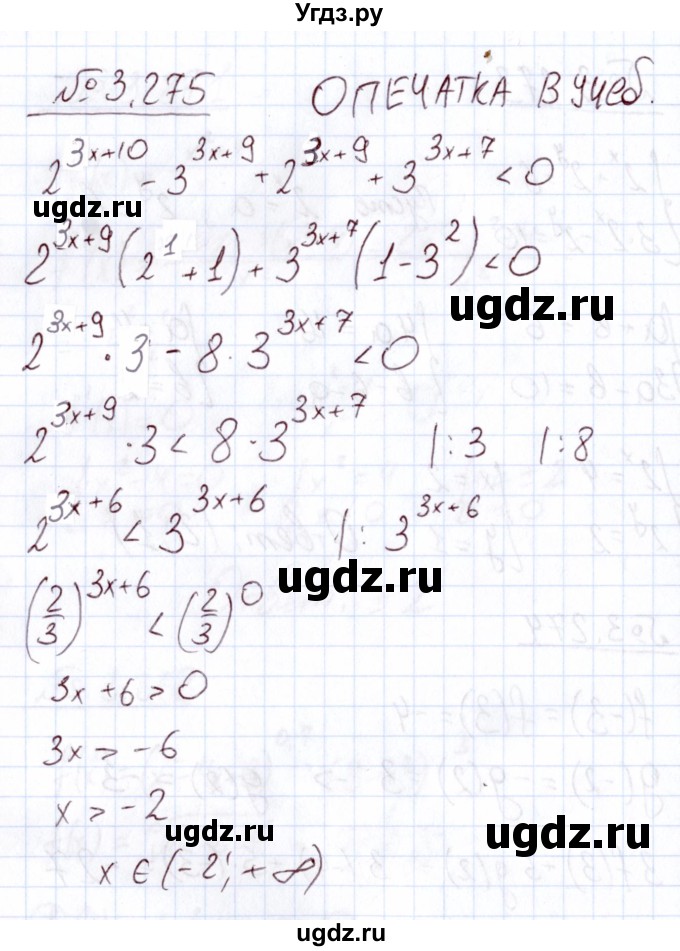 Угдз.ру
№ 3.275 ОПЕЧАТКА В учеб.
2^{3x+10} - 3^{3x+9} + 2^{3x+9} + 3^{3x+7} < 0
ugdz.ru
2^{3x+9} (2^1 + 1) + 3^{3x+7} (1 - 3^2) < 0
ugdz.ru
2^{3x+9} · 3 - 8 · 3^{3x+7} < 0
ugdz.ru
2^{3x+9} · 3 < 8 · 3^{3x+7} |: 3 |: 8
2^{3x+6} < 3^{3x+6} |: 3^{3x+6}
ugdz.ru
(2/3)^{3x+6} < (2/3)^0
3x + 6 > 0
ugdz.ru
3x > -6
x > -2
ugdz.ru
ugdz.ru
x ∈ (-2; +∞)
ugdz.ru